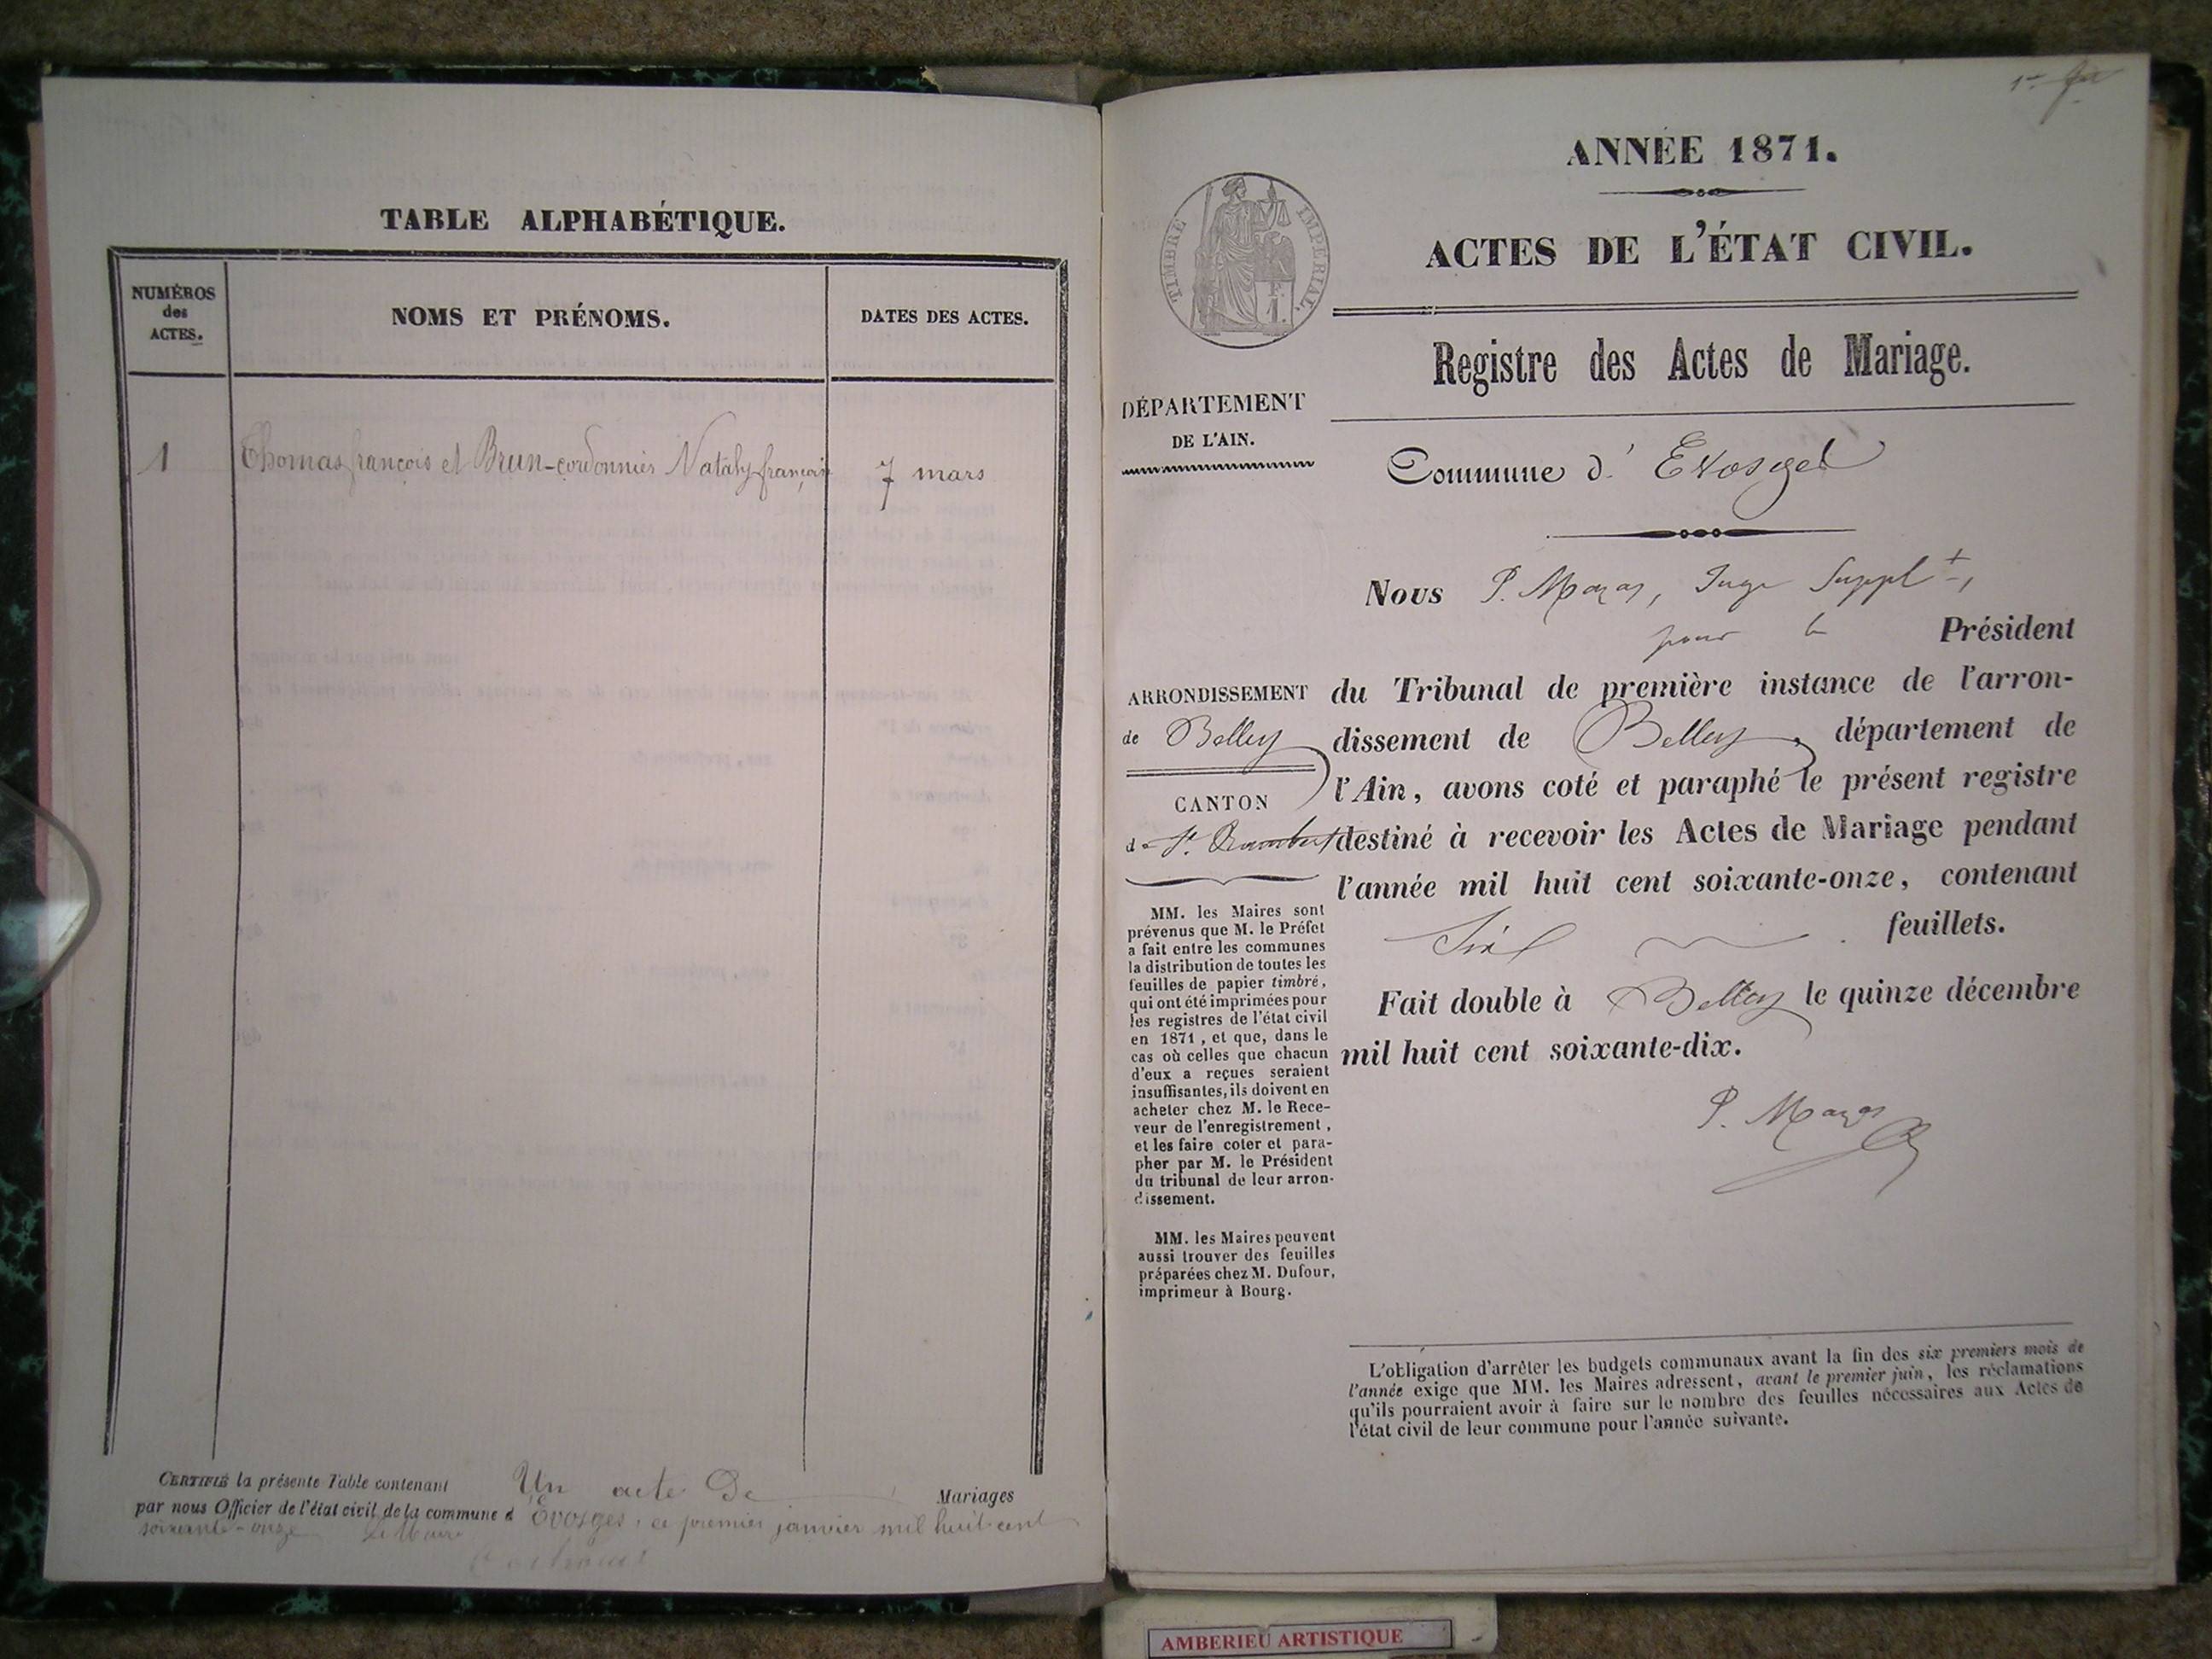 TABLE ALPHABÉTIQUE.
NUMÉROS
des
ACTES.
NOMS ET PRÉNOMS.
DATES DES ACTES.
1
Thomas françois et Brun-cordonnier Nataly françoise
7 mars
CERTIFIÉ la présente Table contenant Un acte De Mariages
par nous Officier de l'état civil de la commune d'Évosges, ce premier janvier mil huit cent
soixante-onze Le Maire
ANNÉE 1871.
TIMBRE IMPÉRIAL.
ACTES DE L'ÉTAT CIVIL.
Registre des Actes de Mariage.
DÉPARTEMENT
DE L'AIN.
Commune d' Evosges
ARRONDISSEMENT
de Belley
CANTON
de St. Rambert
MM. les Maires sont
prévenus que M. le Préfet
a fait entre les communes
la distribution de toutes les
feuilles de papier timbré,
qui ont été imprimées pour
les registres de l'état civil
en 1871, et que, dans le
cas où celles que chacun
d'eux a reçues seraient
insuffisantes, ils doivent en
acheter chez M. le Rece-
veur de l'enregistrement,
et les faire coter et para-
pher par M. le Président
du tribunal de leur arron-
dissement.
MM. les Maires peuvent
aussi trouver des feuilles
préparées chez M. Dufour,
imprimeur à Bourg.
Nous P. Mazas, Juge Supplt,
pour le Président
du Tribunal de première instance de l'arron-
dissement de Belley, département de
l'Ain, avons coté et paraphé le présent registre
destiné à recevoir les Actes de Mariage pendant
l'année mil huit cent soixante-onze, contenant
Six feuillets.
Fait double à Belley le quinze décembre
mil huit cent soixante-dix.
P. Mazas
L'obligation d'arrêter les budgets communaux avant la fin des six premiers mois de
l'année exige que MM. les Maires adressent, avant le premier juin, les réclamations
qu'ils pourraient avoir à faire sur le nombre des feuilles nécessaires aux Actes de
l'état civil de leur commune pour l'année suivante.
AMBERIEU ARTISTIQUE